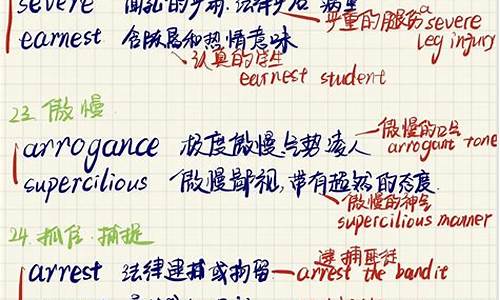 severe
严重的腿伤 a severe leg injury
earnest 含低昂和热情意味
认真的学生
earnest student
23. 傲慢
arrogance 极度傲慢,气势凌人
傲慢的口气
arrogant tone
supercilious 傲慢鄙视,带有超然的态度
傲慢的神气
supercilious manner
24. 抓住.捕捉
arrest 法律逮捕或拘留
逮捕匪徒
arrest the bandit